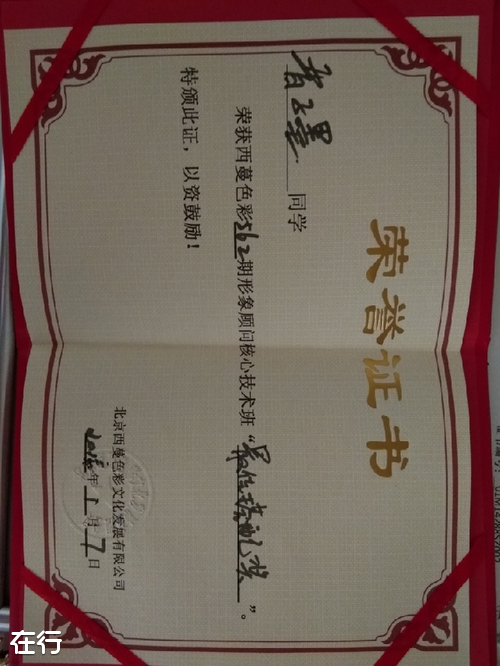 荣誉证书
同学
荣获西蔓色彩562期形象顾问核心技术班“最佳搭配奖”。
特颁此证，以资鼓励！
北京西蔓色彩文化发展有限公司
年 月7日
在行